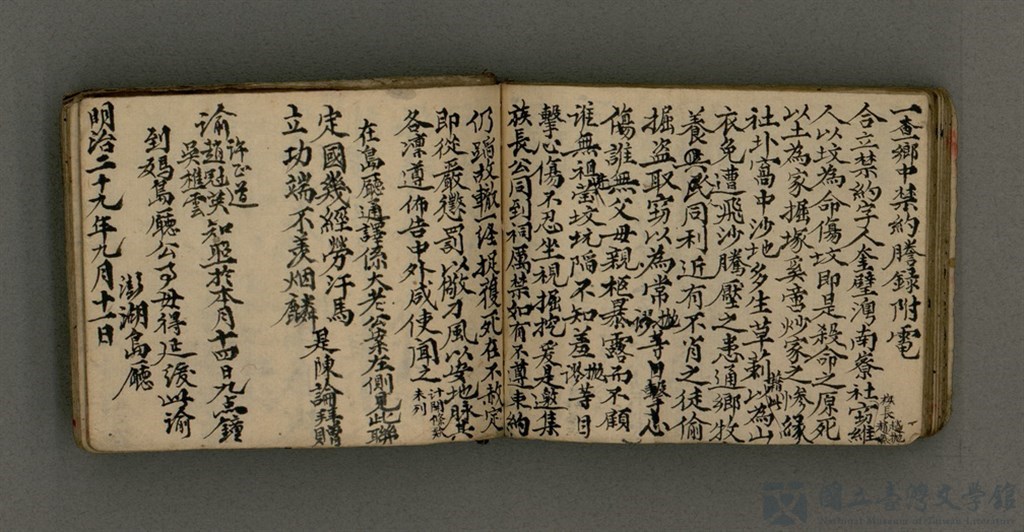 一查鄉中禁約謄錄附電
合立禁約字人奎壁澳南寮社 窃維
人以坟為命傷坟即是殺命之原死
以土為家掘塚奚啻炒家之慘緣
社北高中沙地多生草莿藉此以為山
衣免遭飛沙騰壓之患通鄉牧
養與民同利近有不肖之徒偷
掘盜取窃以為常 等目擊心
傷誰無父母親柩暴露而不顧
誰無祖塋坟坑陷不知羞 等目
擊心傷不忍坐視掘挖爰是邀集
族長公同到祠厲禁如有不遵束約
仍蹈故轍一經捉獲死在不赦定
即從嚴懲罰以儆刁風以安地脉其
各凜遵佈告中外咸使聞之 計開條款未列
在島廳通譯係大老公案左側見此聯
定國幾經勞汗馬
立功端不羨烟麟 是陳論拜贈
許正道
諭趙冠英知照於本月十四日九点鐘
吳雅雲
到碼島廳公事毋得延緩此諭
澎湖島廳
明治二十九年九月十一日
國立臺灣文學館
National Museum of Taiwan Literature